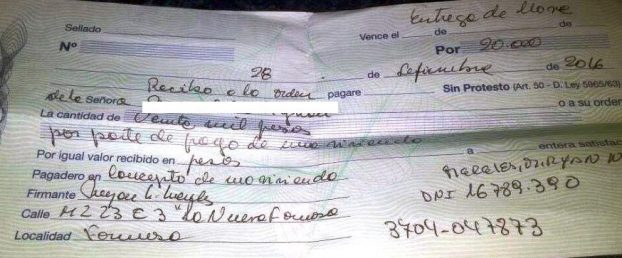 Entrega de Llave
Sellado Vence el de de
Nº Por 20.000
28 de Septiembre de 2016
Recibo a la orden pagare Sin Protesto (Art. 50 - D. Ley 5965/63)
de la Señora o a su orden
La cantidad de Veinte mil pesos
por parte de pago de una vivienda
a entera satisfac
Por igual valor recibido en pesos
Pagadero en Concepto de una vivienda
Firmante
DNI 16.789.390
Calle MZ 23 C 3 "La Nueva Formosa
Localidad Formosa 3704-047873